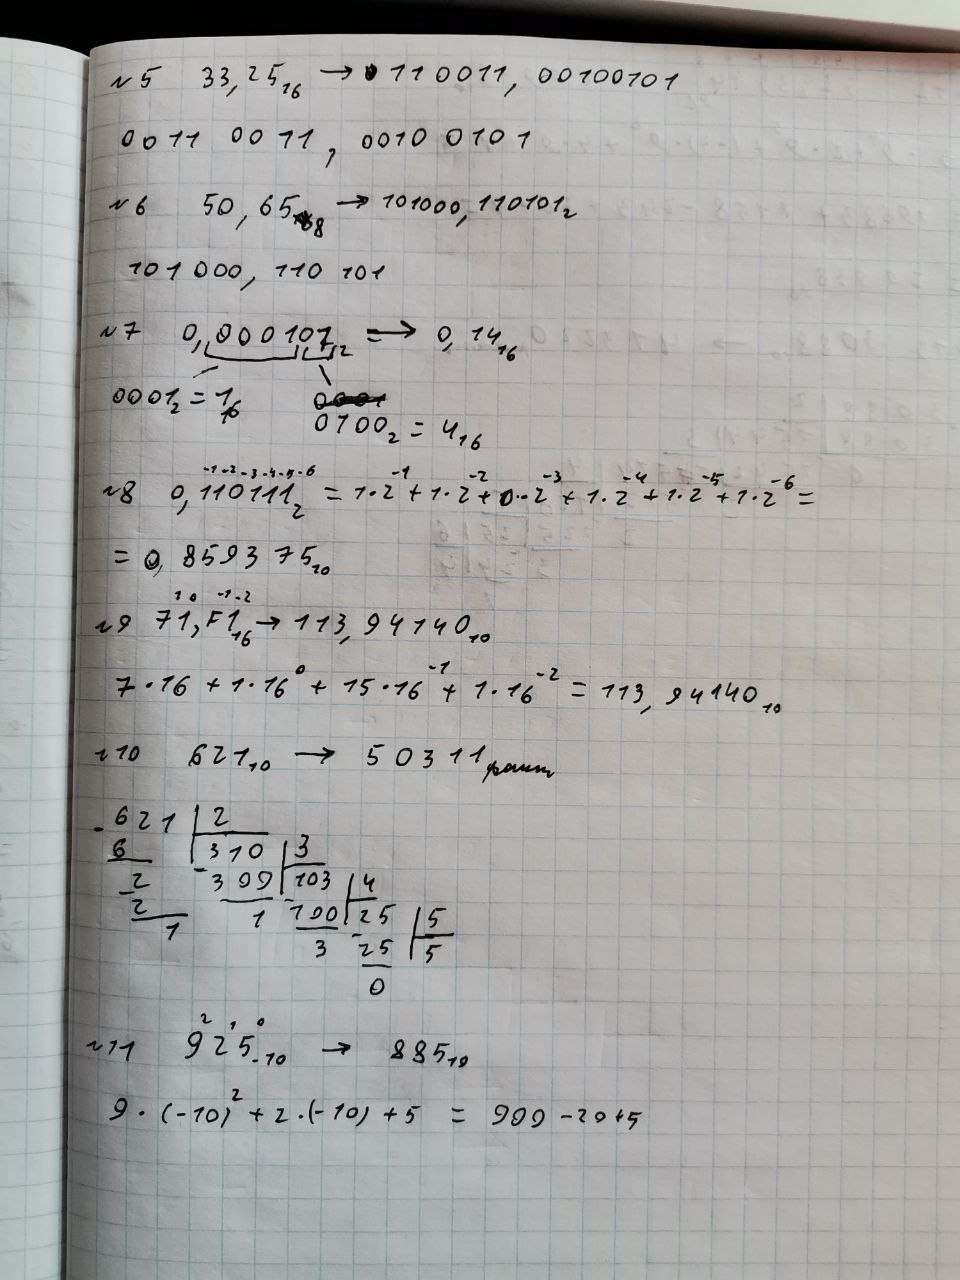 №5 33,25₁₆ → 110011, 00100101
0011 0011, 0010 0101
№6 50,65₈ → 101000,110101₂
101 000, 110 101
№7 0,000101₂ ⇒ 0,14₁₆
0001₂ = 1₁₆
0100₂ = 4₁₆
-1 -2 -3 -4 -5 -6
№8 0,110111₂ = 1·2⁻¹ + 1·2⁻² + 0·2⁻³ + 1·2⁻⁴ + 1·2⁻⁵ + 1·2⁻⁶ =
= 0,859375₁₀
1 0 -1 -2
№9 71,F1₁₆ → 113,94140₁₀
7·16 + 1·16⁰ + 15·16⁻¹ + 1·16⁻² = 113,94140₁₀
№10 621₁₀ → 50311факт
-621 | 2
6 310 | 3
-2 -309 103 | 4
2 1 -100 25 | 5
1 3 -25 5
0
2 1 0
№11 925₋₁₀ → 885₁₀
9·(-10)² + 2·(-10) + 5 = 900 - 20 + 5